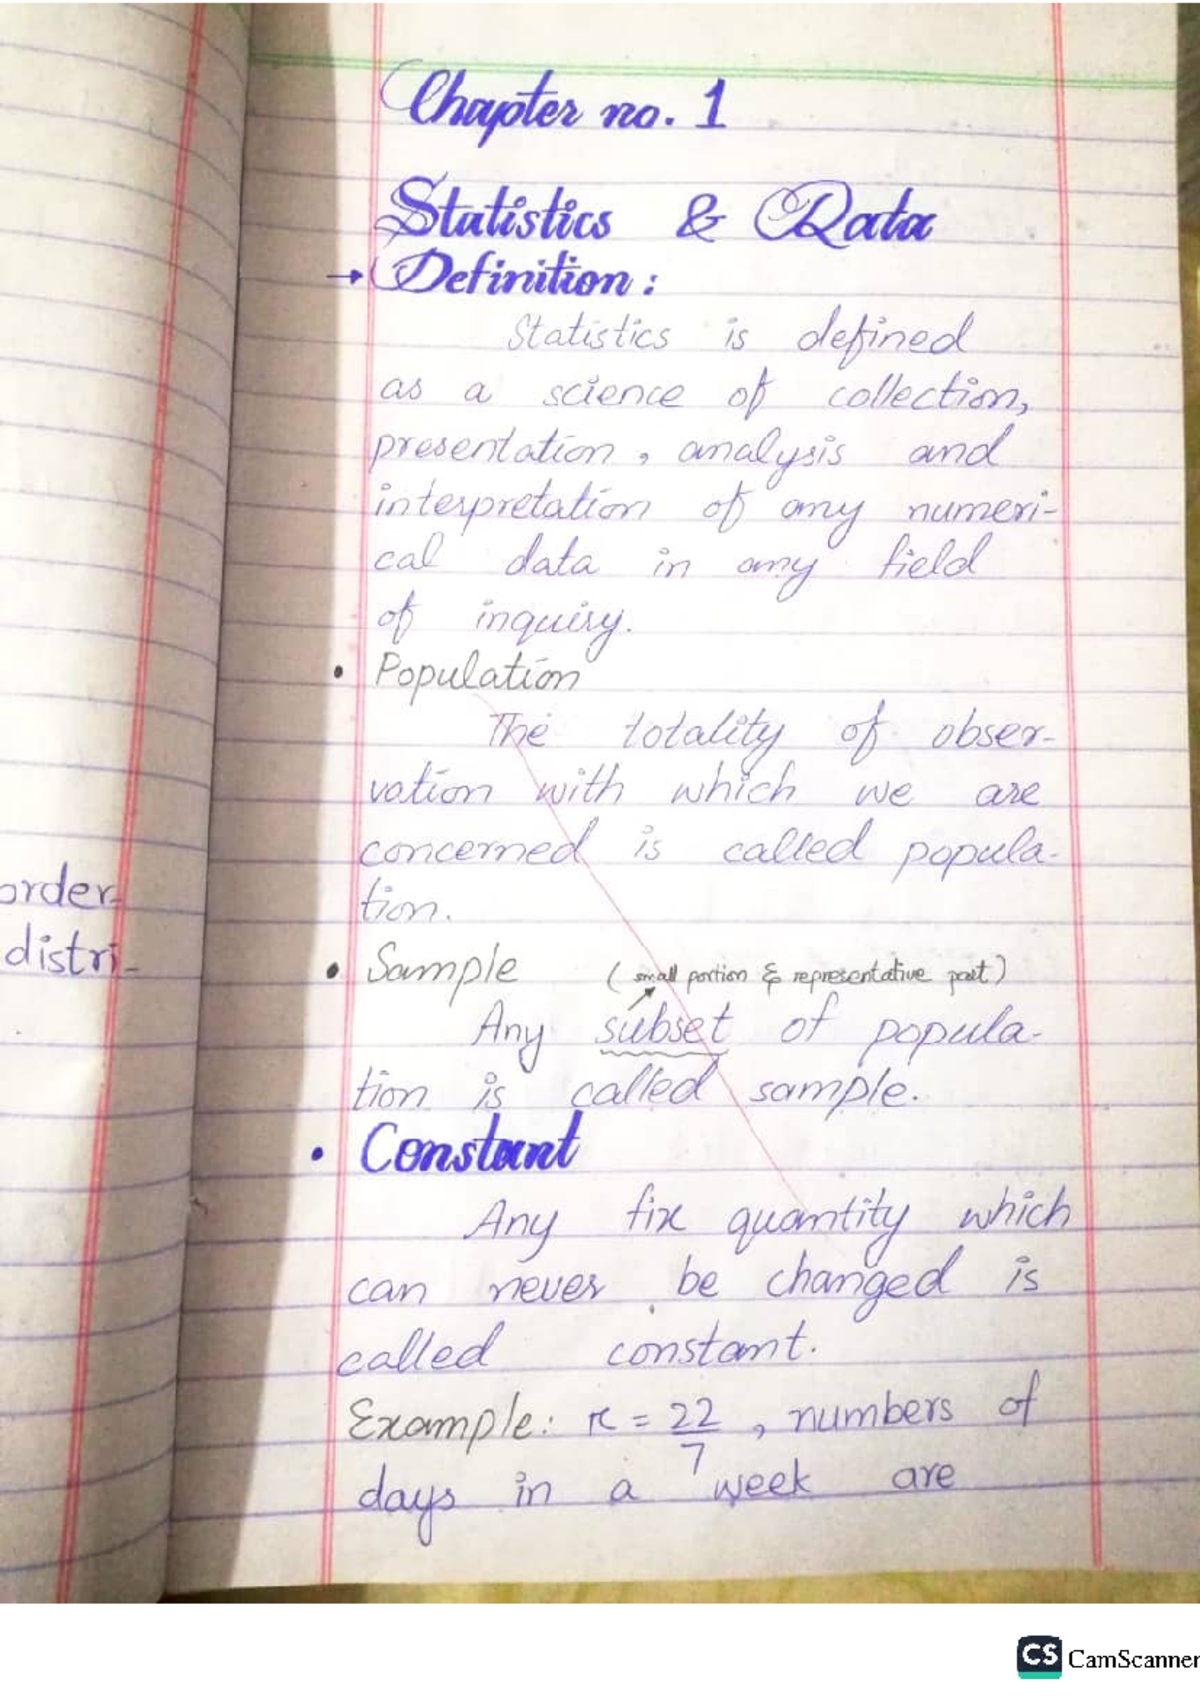 order-
distri-
Chapter no. 1
Statistics & Data
→ Definition:
Statistics is defined
as a science of collection,
presentation, analysis and
interpretation of any numeri-
cal data in any field
of inquiry.
• Population
The totality of obser-
vation with which we are
concerned is called popula-
tion.
• Sample (small portion & representative part)
Any subset of popula-
tion is called sample.
• Constant
Any fix quantity which
can never be changed is
called constant.
Example: π = 22/7, numbers of
days in a week are
CS CamScanner